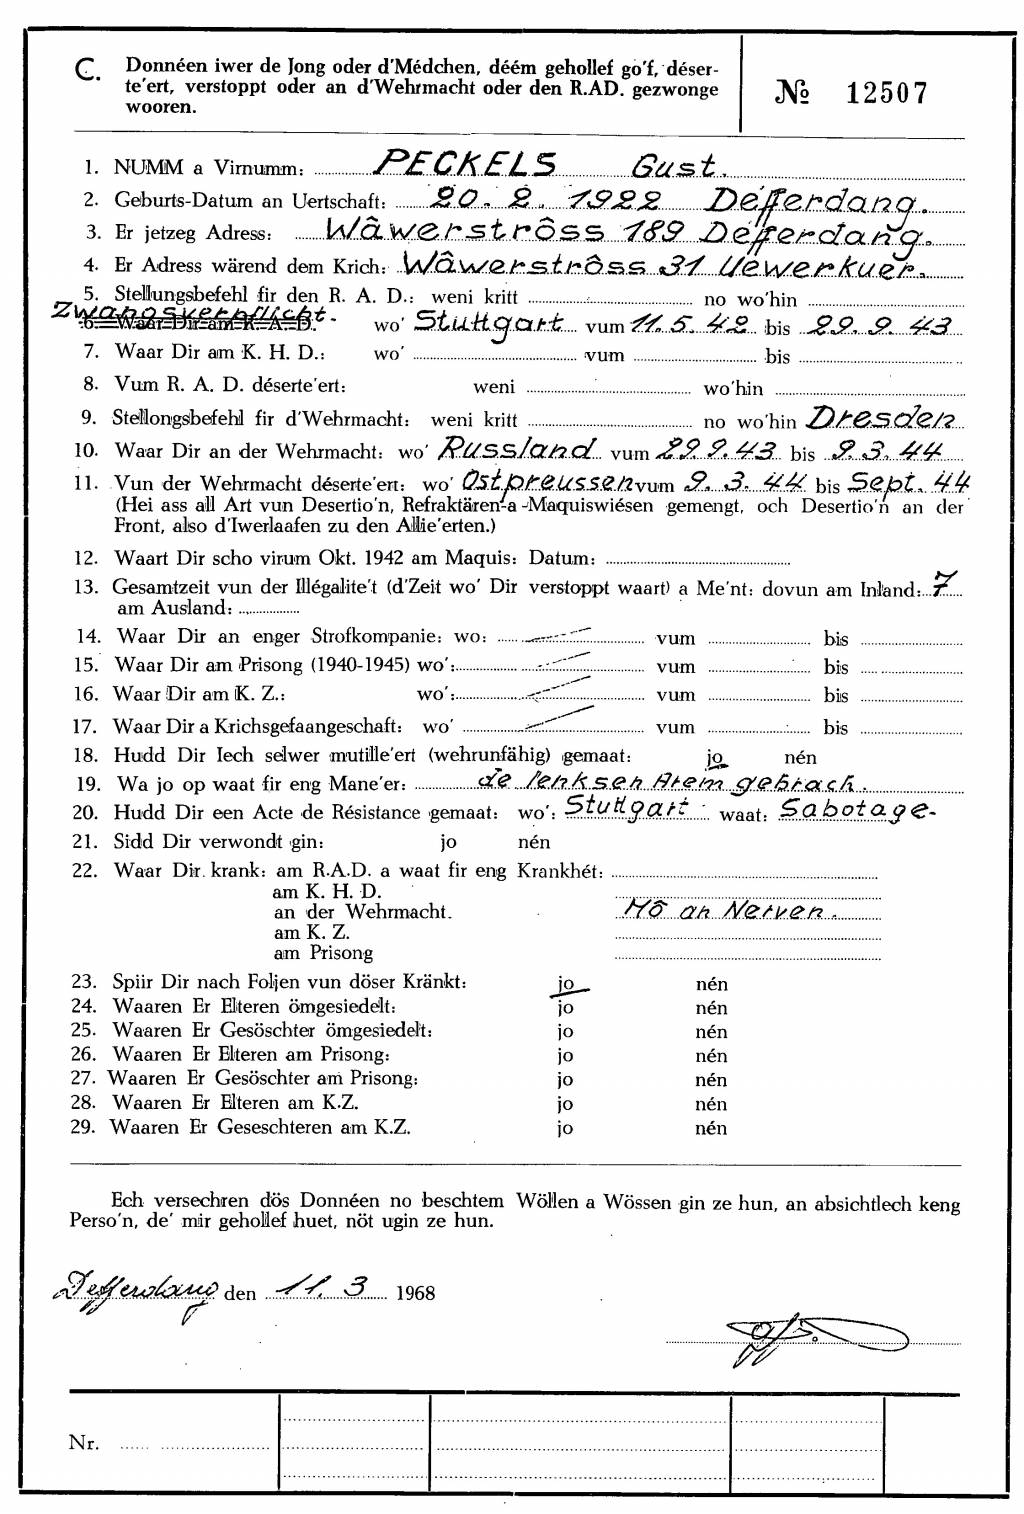 C. Donnéen iwer de Jong oder d'Médchen, déém gehollef go'f, déser-
te'ert, verstoppt oder an d'Wehrmacht oder den R.AD. gezwonge
wooren.
№ 12507
1. NUMM a Virnumm: PECKELS Gust.
2. Geburts-Datum an Uertschaft: 20. 2. 1922 Défferdang.
3. Er jetzeg Adress: Wâwerstrôss 189 Défferdang.
4. Er Adress wärend dem Krich: Wâwerstrôss 31 Uewerkuer.
5. Stellungsbefehl fir den R. A. D.: weni kritt no wo'hin
Zwangsverpflicht.
6. Waar Dir am R. A. D. wo' Stuttgart vum 11. 5. 42 bis 29. 9. 43
7. Waar Dir am K. H. D.: wo' vum bis
8. Vum R. A. D. déserte'ert: weni wo'hin
9. Stellongsbefehl fir d'Wehrmacht: weni kritt no wo'hin Dresden
10. Waar Dir an der Wehrmacht: wo' Russland vum 29.9.43 bis 9.3.44
11. Vun der Wehrmacht déserte'ert: wo' Ostpreussen vum 9. 3. 44 bis Sept. 44
(Hei ass all Art vun Desertio'n, Refraktären-a-Maquiswiésen gemengt, och Desertio'n an der
Front, also d'Iwerlaafen zu den Allie'erten.)
12. Waart Dir scho virum Okt. 1942 am Maquis: Datum:
13. Gesamtzeit vun der Illégalite't (d'Zeit wo' Dir verstoppt waart) a Me'nt: dovun am Inland: 7
am Ausland:
14. Waar Dir an enger Strofkompanie: wo: vum bis
15. Waar Dir am Prisong (1940-1945) wo': vum bis
16. Waar Dir am K. Z.: wo': vum bis
17. Waar Dir a Krichsgefaangeschaft: wo' vum bis
18. Hudd Dir Iech selwer mutille'ert (wehrunfähig) gemaat: jo nén
19. Wa jo op waat fir eng Mane'er: de lenksen Arem gebrach.
20. Hudd Dir een Acte de Résistance gemaat: wo': Stuttgart waat: Sabotage-
21. Sidd Dir verwondt gin: jo nén
22. Waar Dir krank: am R.A.D. a waat fir eng Krankhét:
am K. H. D.
an der Wehrmacht. Mô an Nerven.
am K. Z.
am Prisong
23. Spiir Dir nach Foljen vun döser Kränkt: jo nén
24. Waaren Er Elteren ömgesiedelt: jo nén
25. Waaren Er Gesöschter ömgesiedelt: jo nén
26. Waaren Er Elteren am Prisong: jo nén
27. Waaren Er Gesöschter am Prisong: jo nén
28. Waaren Er Elteren am K.Z. jo nén
29. Waaren Er Geseschteren am K.Z. jo nén
Ech versechren dös Donnéen no beschtem Wöllen a Wössen gin ze hun, an absichtlech keng
Perso'n, de' mir gehollef huet, nöt ugin ze hun.
Defferdang den 11. 3 1968
Nr.